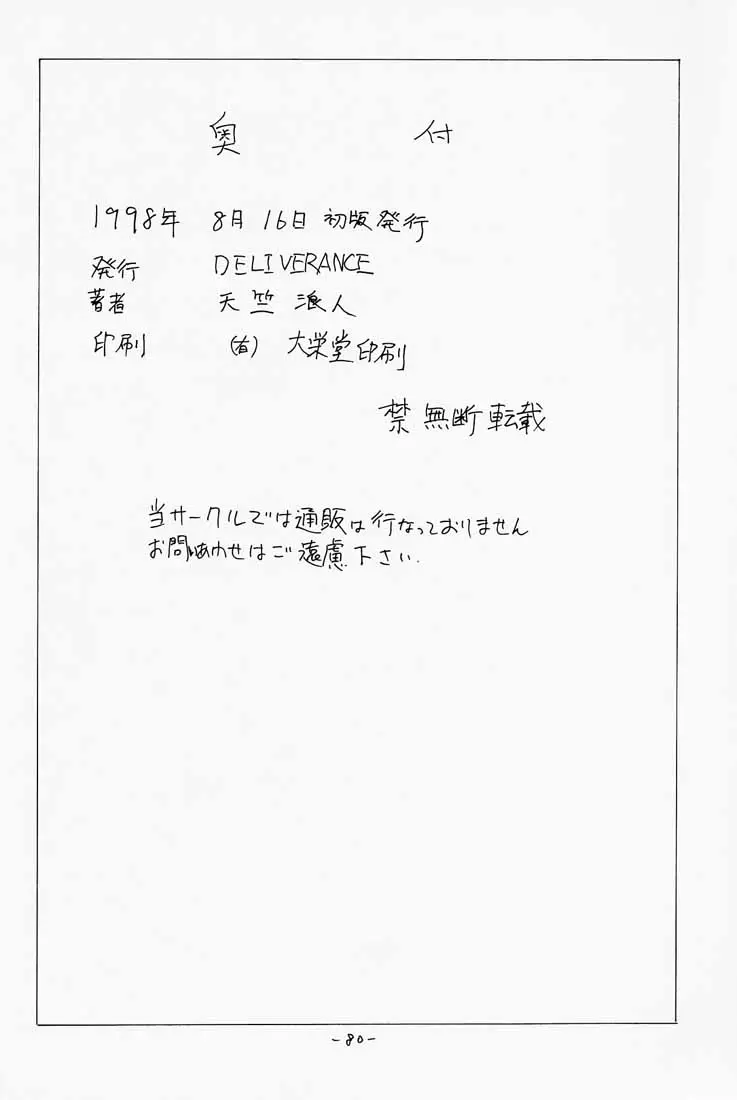 奥 付
1998年 8月 16日 初版発行
発行 DELIVERANCE
著者 天竺 浪人
印刷 (有) 大栄堂印刷
禁 無断転載
当サークルでは通販は行なっておりません
お問いあわせはご遠慮下さい.
-80-